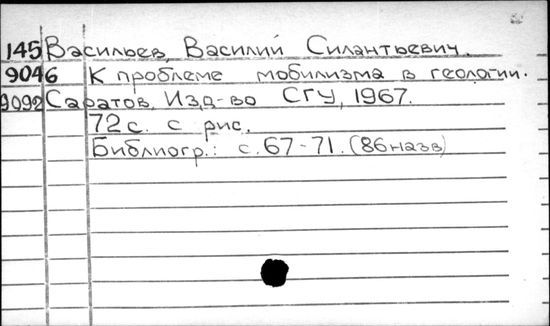 145 Васильев, Василий Силантьевич.
9046 К проблеме мобилизма в геологии.
9092 Саратов, Изд-во СГУ, 1967.
72 с. с рис.
Библиогр.: с. 67-71. (86 назв)